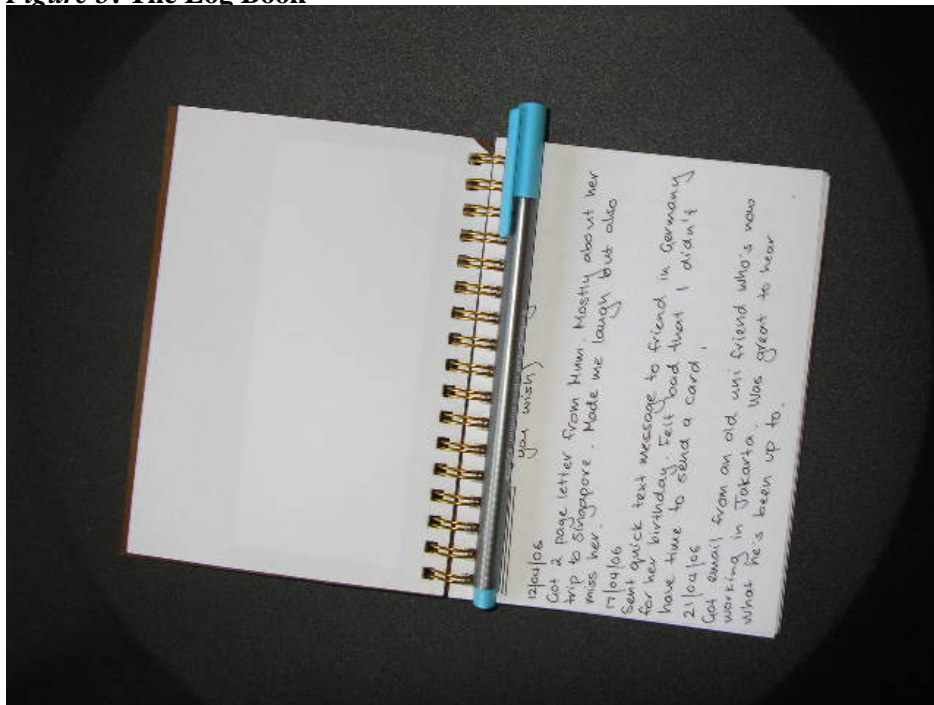 Figure 3: The Log Book
you wish)
12/04/06
Got 2 page letter from Mum. Mostly about her
trip to Singapore. Made me laugh but also
miss her.
17/04/06
Sent quick text message to friend in Germany
for her birthday. Felt bad that I didn't
have time to send a card.
21/04/06
Got email from an old uni friend who's now
working in Jakarta. Was great to hear
what he's been up to.